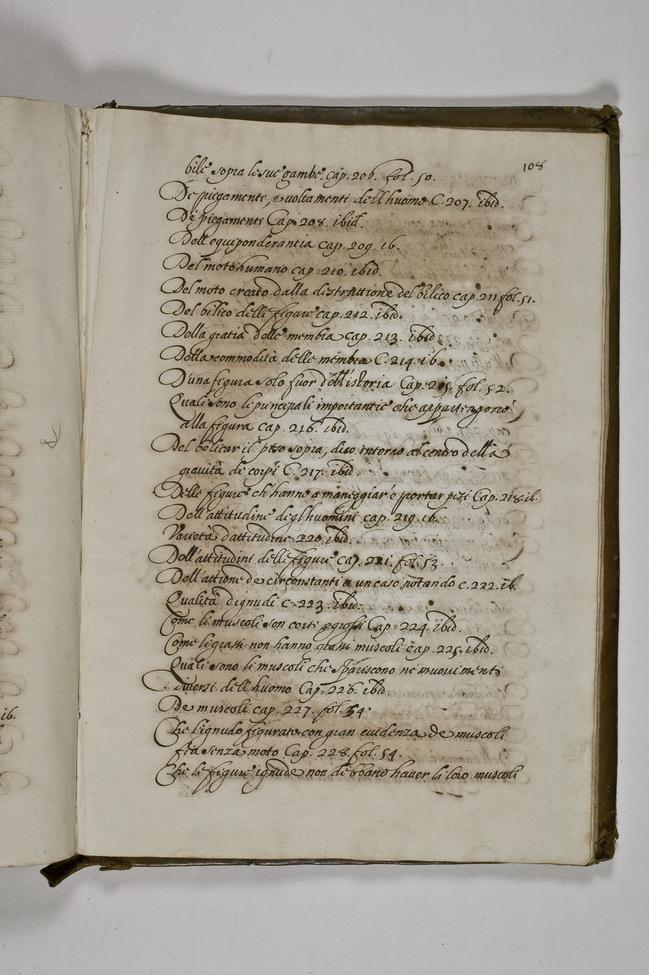 108
bile sopra le sue gambe cap. 206. fol. 50.
De piegamenti, e voltamenti dell huomo C. 207. ibid.
De piegamenti Cap. 208. ibid.
Dell equiponderantia cap. 209. ib.
Del moto humano cap. 210. ibid.
Del moto creato dalla distruttione del bilico cap. 211 fol. 51.
Del bilico delle figure cap. 212. ibid.
Della gratia delle membra cap. 213. ibid.
Della commodità delle membra C. 214. ib.
D'una figura solo fuor dell'istoria Cap. 215. fol. 52.
Quali sono le principali importantie che appartengono
alla figura cap. 216. ibid.
Del bilicar il peso sopra, di so intorno al centro della
gravità de corpi C. 217. ibid.
Delle figure ch'hanno a maneggiar e portar pezi Cap. 218. ib.
Dell'attitudine de gl huomini cap. 219. ib.
Varietà d'attitudine 220. ibid.
Dell'attitudini delle figure cap. 221. fol. 53.
Dell'attione de circonstanti a un caso notando c. 222. ib.
Qualità d ignudi c. 223. ibid.
Come li muscoli son corti e grossi Cap. 224. ibid.
Come li grassi non hanno grossi muscoli cap. 225. ibid.
Quali sono li muscoli che spariscono ne movimenti
diversi dell huomo Cap. 226. ibid.
De muscoli cap. 227. fol. 54
Che l'ignudo figurato con gran evidenza de muscoli
fia senza moto Cap. 228. fol. 54.
Che le figure ignude non debbano haver li loro muscoli
ib.